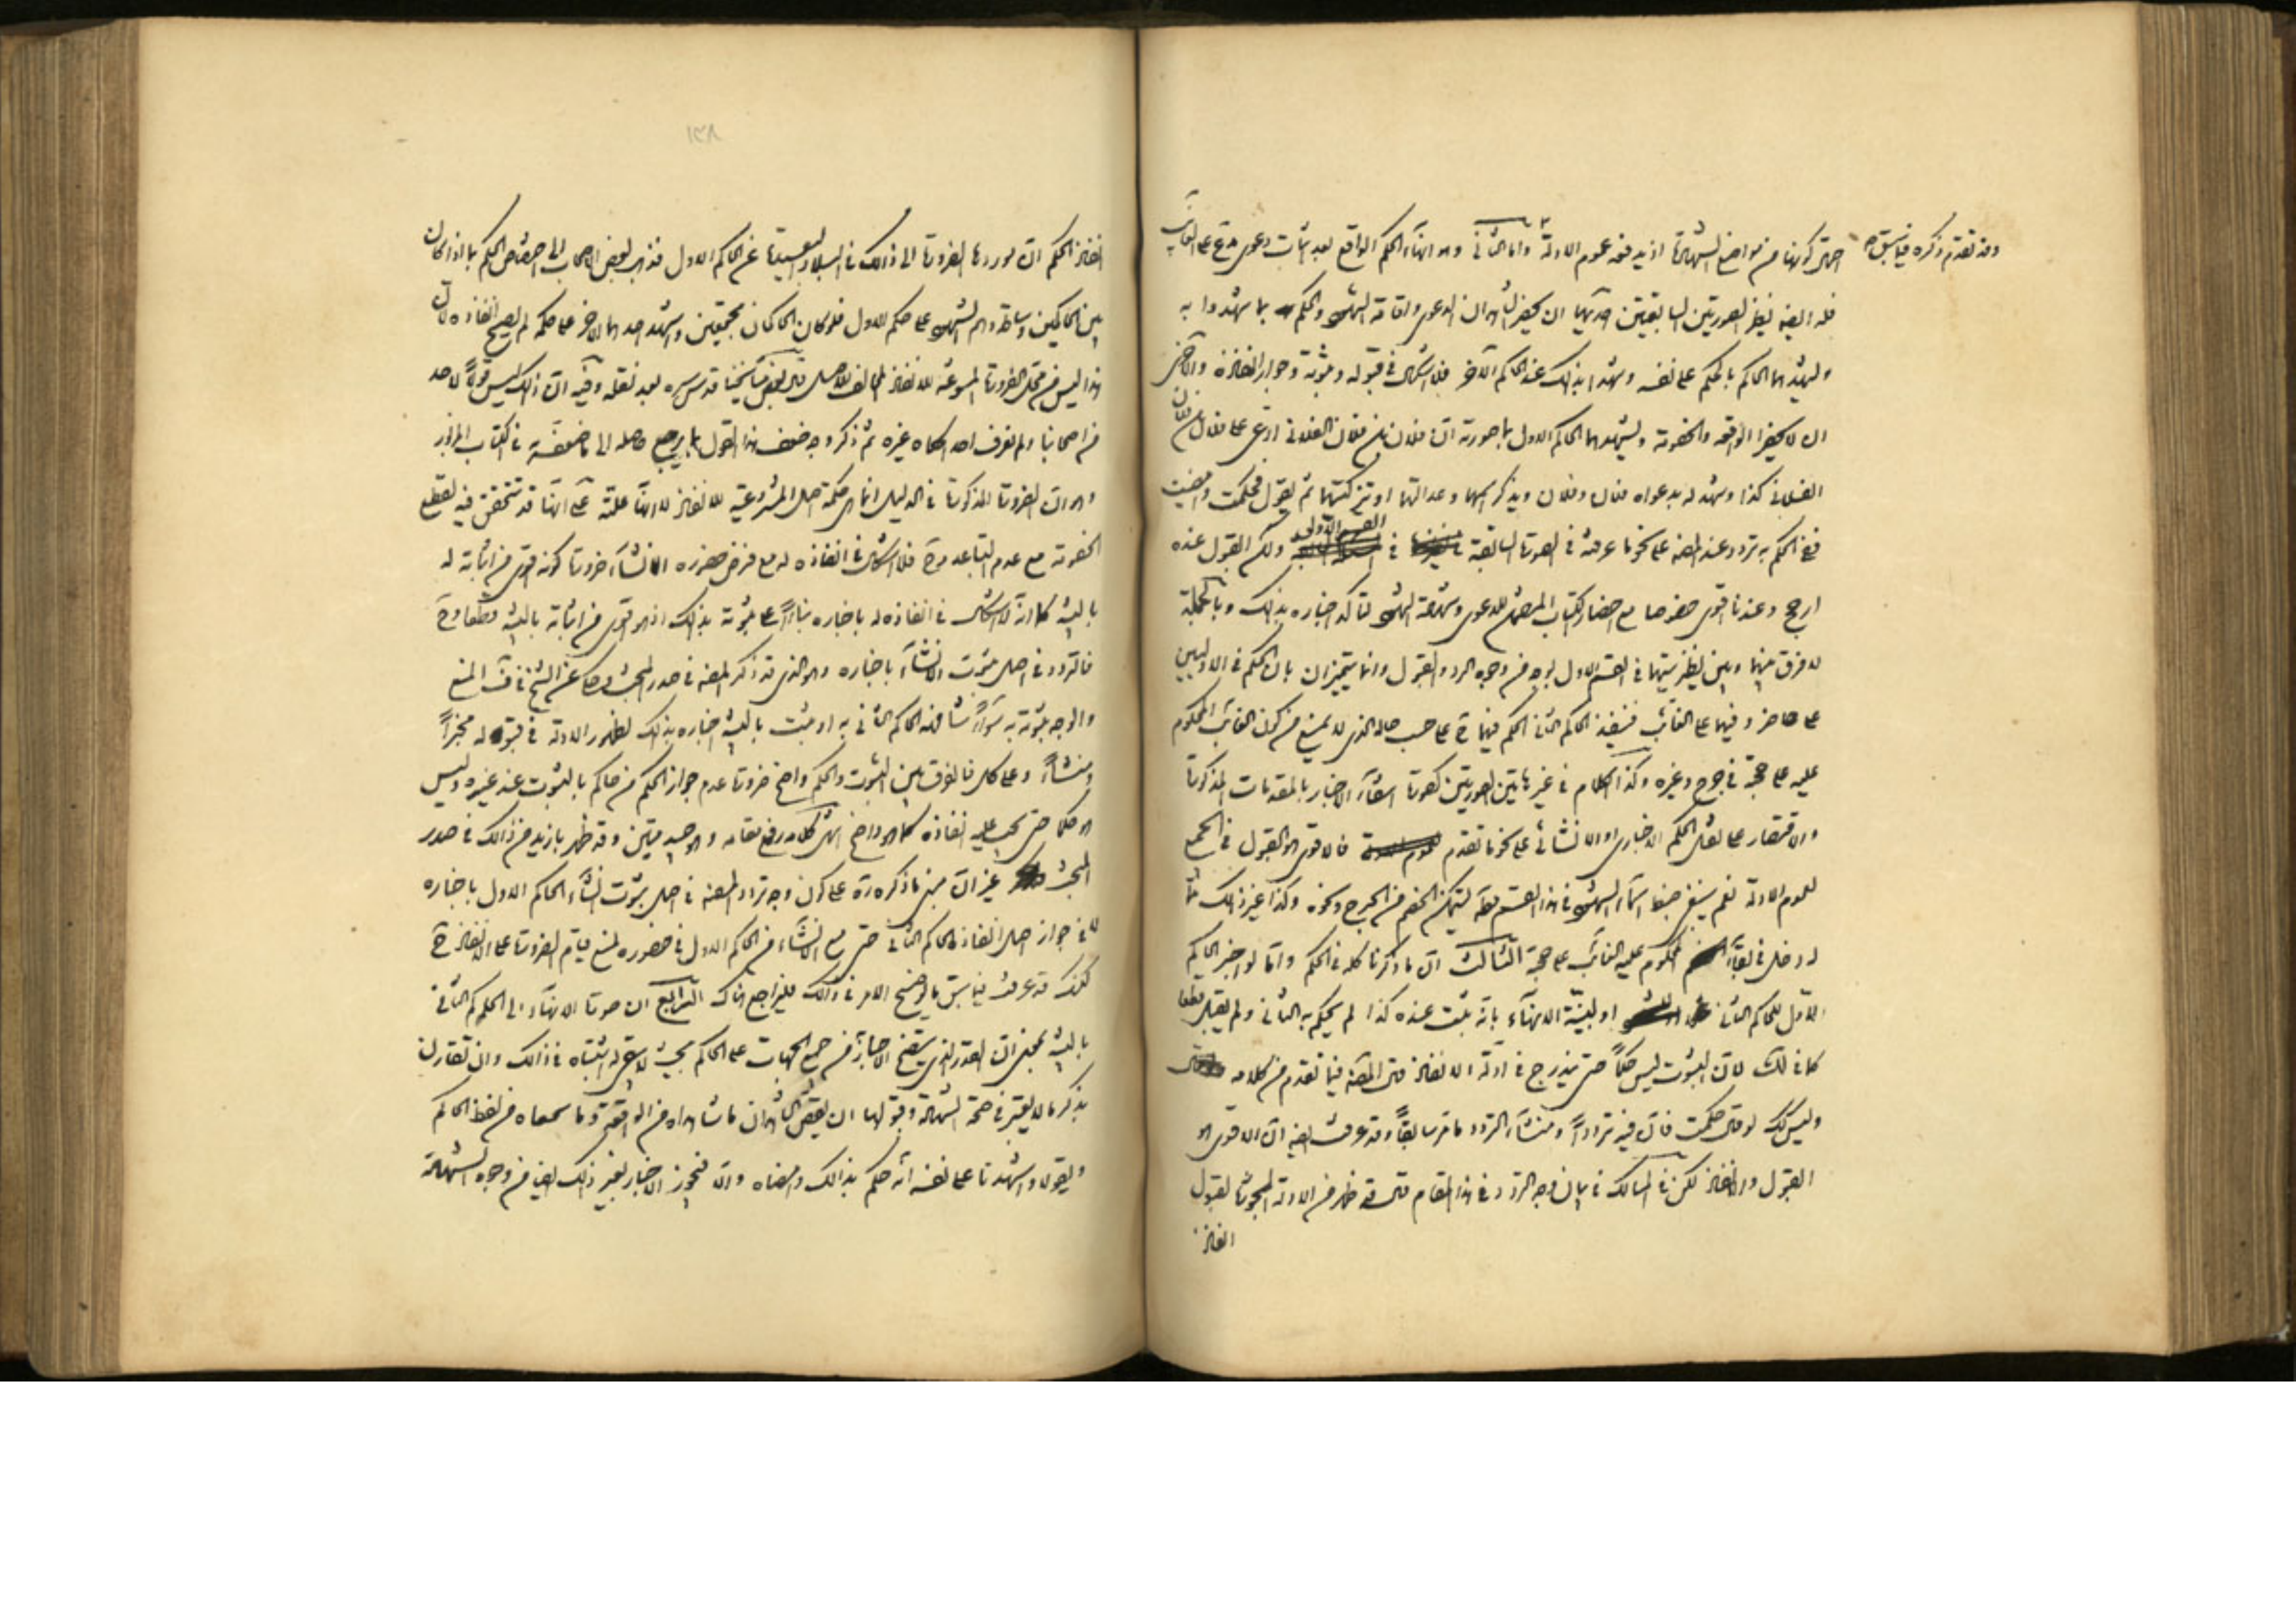 وقد تقدم ذكره فيما سبق
احتمال كونها من مواضع الشهادة اذ يدفعه عموم الادلة واما الثاني وهو انهاء الحكم الواقع بعد اثبات دعوى مدع على الغائب
فله ايضا نظير الصورتين السابقتين احديهما ان يحضر الشاهدان الدعوى واقامة الشهود والحكم بما شهدوا به
وليشهدهما الحاكم بالحكم على نفسه وشهدا بذلك عند الحاكم الآخر فلا اشكال في قبوله وثبوته وجواز انفاذه والاخرى
ان لا يحضرا الواقعة والخصومة وليشهدهما الحاكم الاول بما صورته ان فلان بن فلان الفلاني ادعى على فلان بن فلان
الفلاني كذا وشهد له بدعواه فلان وفلان ويذكر اسمهما وعدالتهما او تزكيتهما ثم يقول فحكمت وامضيت
ففي الحكم به تردد عند المصنف على نحو ما عرفته في الصورة السابقة في القسم الاولى ولكن القبول عنده
ارجح وعندنا اقوى خصوصا مع احضار الكتاب المتضمن للدعوى وشهادة الشهود لتأكد اخباره بذلك وبالجملة
لا فرق بينهما وبين نظيرتيهما في القسم الاول بوجه من وجوه الرد والقبول وانما يتميزان بان الحكم في الاوليين
على حاضر وفيهما على الغائب فينفذ الحاكم الثاني الحكم فيهما ح على حسب حاله الذي لا يمنع من كون الغائب المحكوم
عليه على حجته في جرح وغيره وكذا الكلام في غير هاتين الصورتين كصورة انتفاء الاخبار بالمقدمات المذكورة
والاقتصار على نقل الحكم الاخباري او الانشائي على نحو ما تقدم فالاقوى هو القبول في الجميع
لعموم الادلة نعم ينبغي ضبط اسماء الشهود في هذا القسم ليتمكن الخصم من الجرح ونحوه وكذا غير ذلك مما
له دخل في بقاء المحكوم عليه الغائب على حجته الثالث ان ما ذكرنا كله في الحكم واما لو اخبر الحاكم
الاول للحاكم الثاني او لبينة الانهاء بانه ثبت عنده كذا لم يحكم به الثاني ولم يقبل قطعا
كما في لك لان الثبوت ليس حكما حتى يندرج في ادلة الانفاذ قال المصنف فيما تقدم من كلامه
وليس كك لو قال حكمت فان فيه ترددا ومنشاء التردد ما مر سابقا وقد عرفت ايضا ان الاقوى هو
القبول والانفاذ لكن في المسالك في بيان وجه التردد في هذا المقام قال قد ظهر من الادلة المجوزة لقبول
انفاذ
انفاذ الحكم ان موردها الضرورة الى ذلك في البلاد البعيدة عن الحاكم الاول فذهب بعض الاصحاب الى اختصاص الحكم بما اذا كان
بين الحاكمين وساطة وهم الشهود على حكم الاول فلو كان الحاكمان مجتمعين واشهد احدهما الاخر على حكمه لم يصح انفاذه لان
هذا ليس من محل الضرورة المسوغة للانفاذ المخالف للاصل قال بعض مشايخنا قدس سره بعد نقله وفيه ان ذلك ليس قولا لاحد
من اصحابنا ولم نعرف احدا حكاه غيره ثم ذكر وجه ضعف هذا القول بما يرجع حاصله الى ما ضعفه به في الكتاب المزبور
وهو ان الضرورة المذكورة في الدليل انما هي حكمة اصل المشروعية للانفاذ لا انها علة على انها قد تتحقق فيه لقطع
الخصومة مع عدم التباعد وح فلا اشكال في انفاذه له مع فرض حضوره الانشاء ضرورة كونه اقوى من اثباته له
بالبينة كما انه لا اشكال في انفاذه له باخباره بناء على ثبوته بذلك اذ هو اقوى من اثباته بالبينة قطعا وح
فالتردد في اصل ثبوت الانشاء باخباره وهو الذي قد ذكر المصنف في صدر المبحث وحكاه عن الشيخ في ف المنع
والوجه ثبوته به سواء شافهه الحاكم الثاني به او ثبت بالبينة اخباره بذلك لظهور الادلة في قبوله مخبرا
ومنشاء وعلى كل فالفرق بين الثبوت والحكم واضح ضرورة عدم جواز الحكم من حاكم بالثبوت عند غيره وليس
هو حكما حتى يجب عليه انفاذه كما هو واضح انتهى كلامه رفع مقامه وهو جيد متين وقد ظهر بازيد من ذلك في صدر
المبحث غير ان مبنى ما ذكره ره على كون وجه تردد المصنف في اصل ثبوت انشاء الحاكم الاول باخباره
لا في جواز اصل انفاذ الحاكم الثاني حتى مع الانشاء من الحاكم الاول في حضوره لمنع قيام الضرورة على الانفاذ ح
لكنك قد عرفت فيما سبق ما يوضح الامر في ذلك فليراجع هناك الرابع ان صورة الانهاء الى الحاكم الثاني
بالبينة بمعنى ان القدر الذي يتضح الاخبار من جميع الجهات على الحاكم بحيث لا يبقى له اشتباه في ذلك وان تقارن
بذكر ما لا يعتبر في صحة الشهادة وقبولها ان يقص الشاهدان ما شاهداه من الواقعة وما سمعاه من لفظ الحاكم
ويقولا واشهدنا على نفسه انه حكم بذلك وامضاه والا فيجوز الاخبار بغير ذلك ايضا من وجوه الشهادة